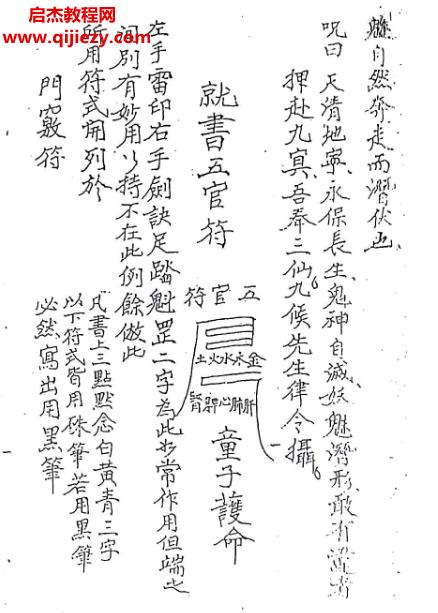 启杰教程网
www.qijiejc.com
魅自然奔走而潛伏也
呪曰天清地寧永保長生鬼神自滅妖魅潛形敢有
押赴九冥吾奉三仙九候先生律令攝
就書五官符
五官符
金木水火土
肝肺心脾腎
童子護命
左手雷印右手劍訣足踏魁罡二字為此尋常作用但端之
洞别有妙用以持不在此例餘倣此
所用符式開列於
凡書上三點點念白黄青三字
以下符式皆用硃筆若用黒筆
必然寫出用黒筆
門竅符